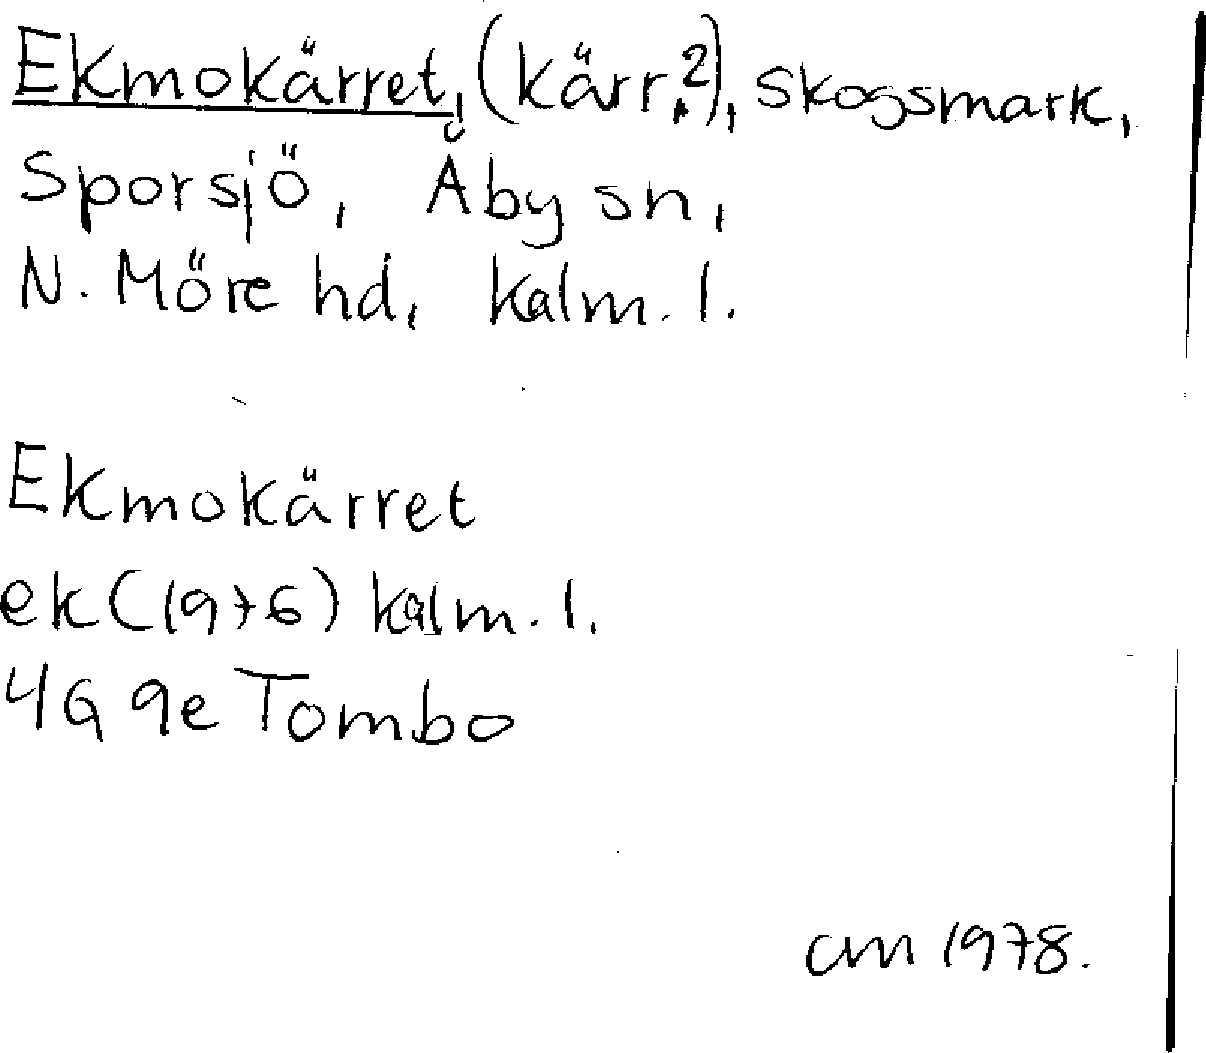 Ekmokärret, (kärr?), skogsmark,
Sporsjö, Åby sn,
N. Möre hd, Kalm. l.
Ekmokärret
ek (1976) Kalm. l.
4G 9e Tombo
cm 1978.